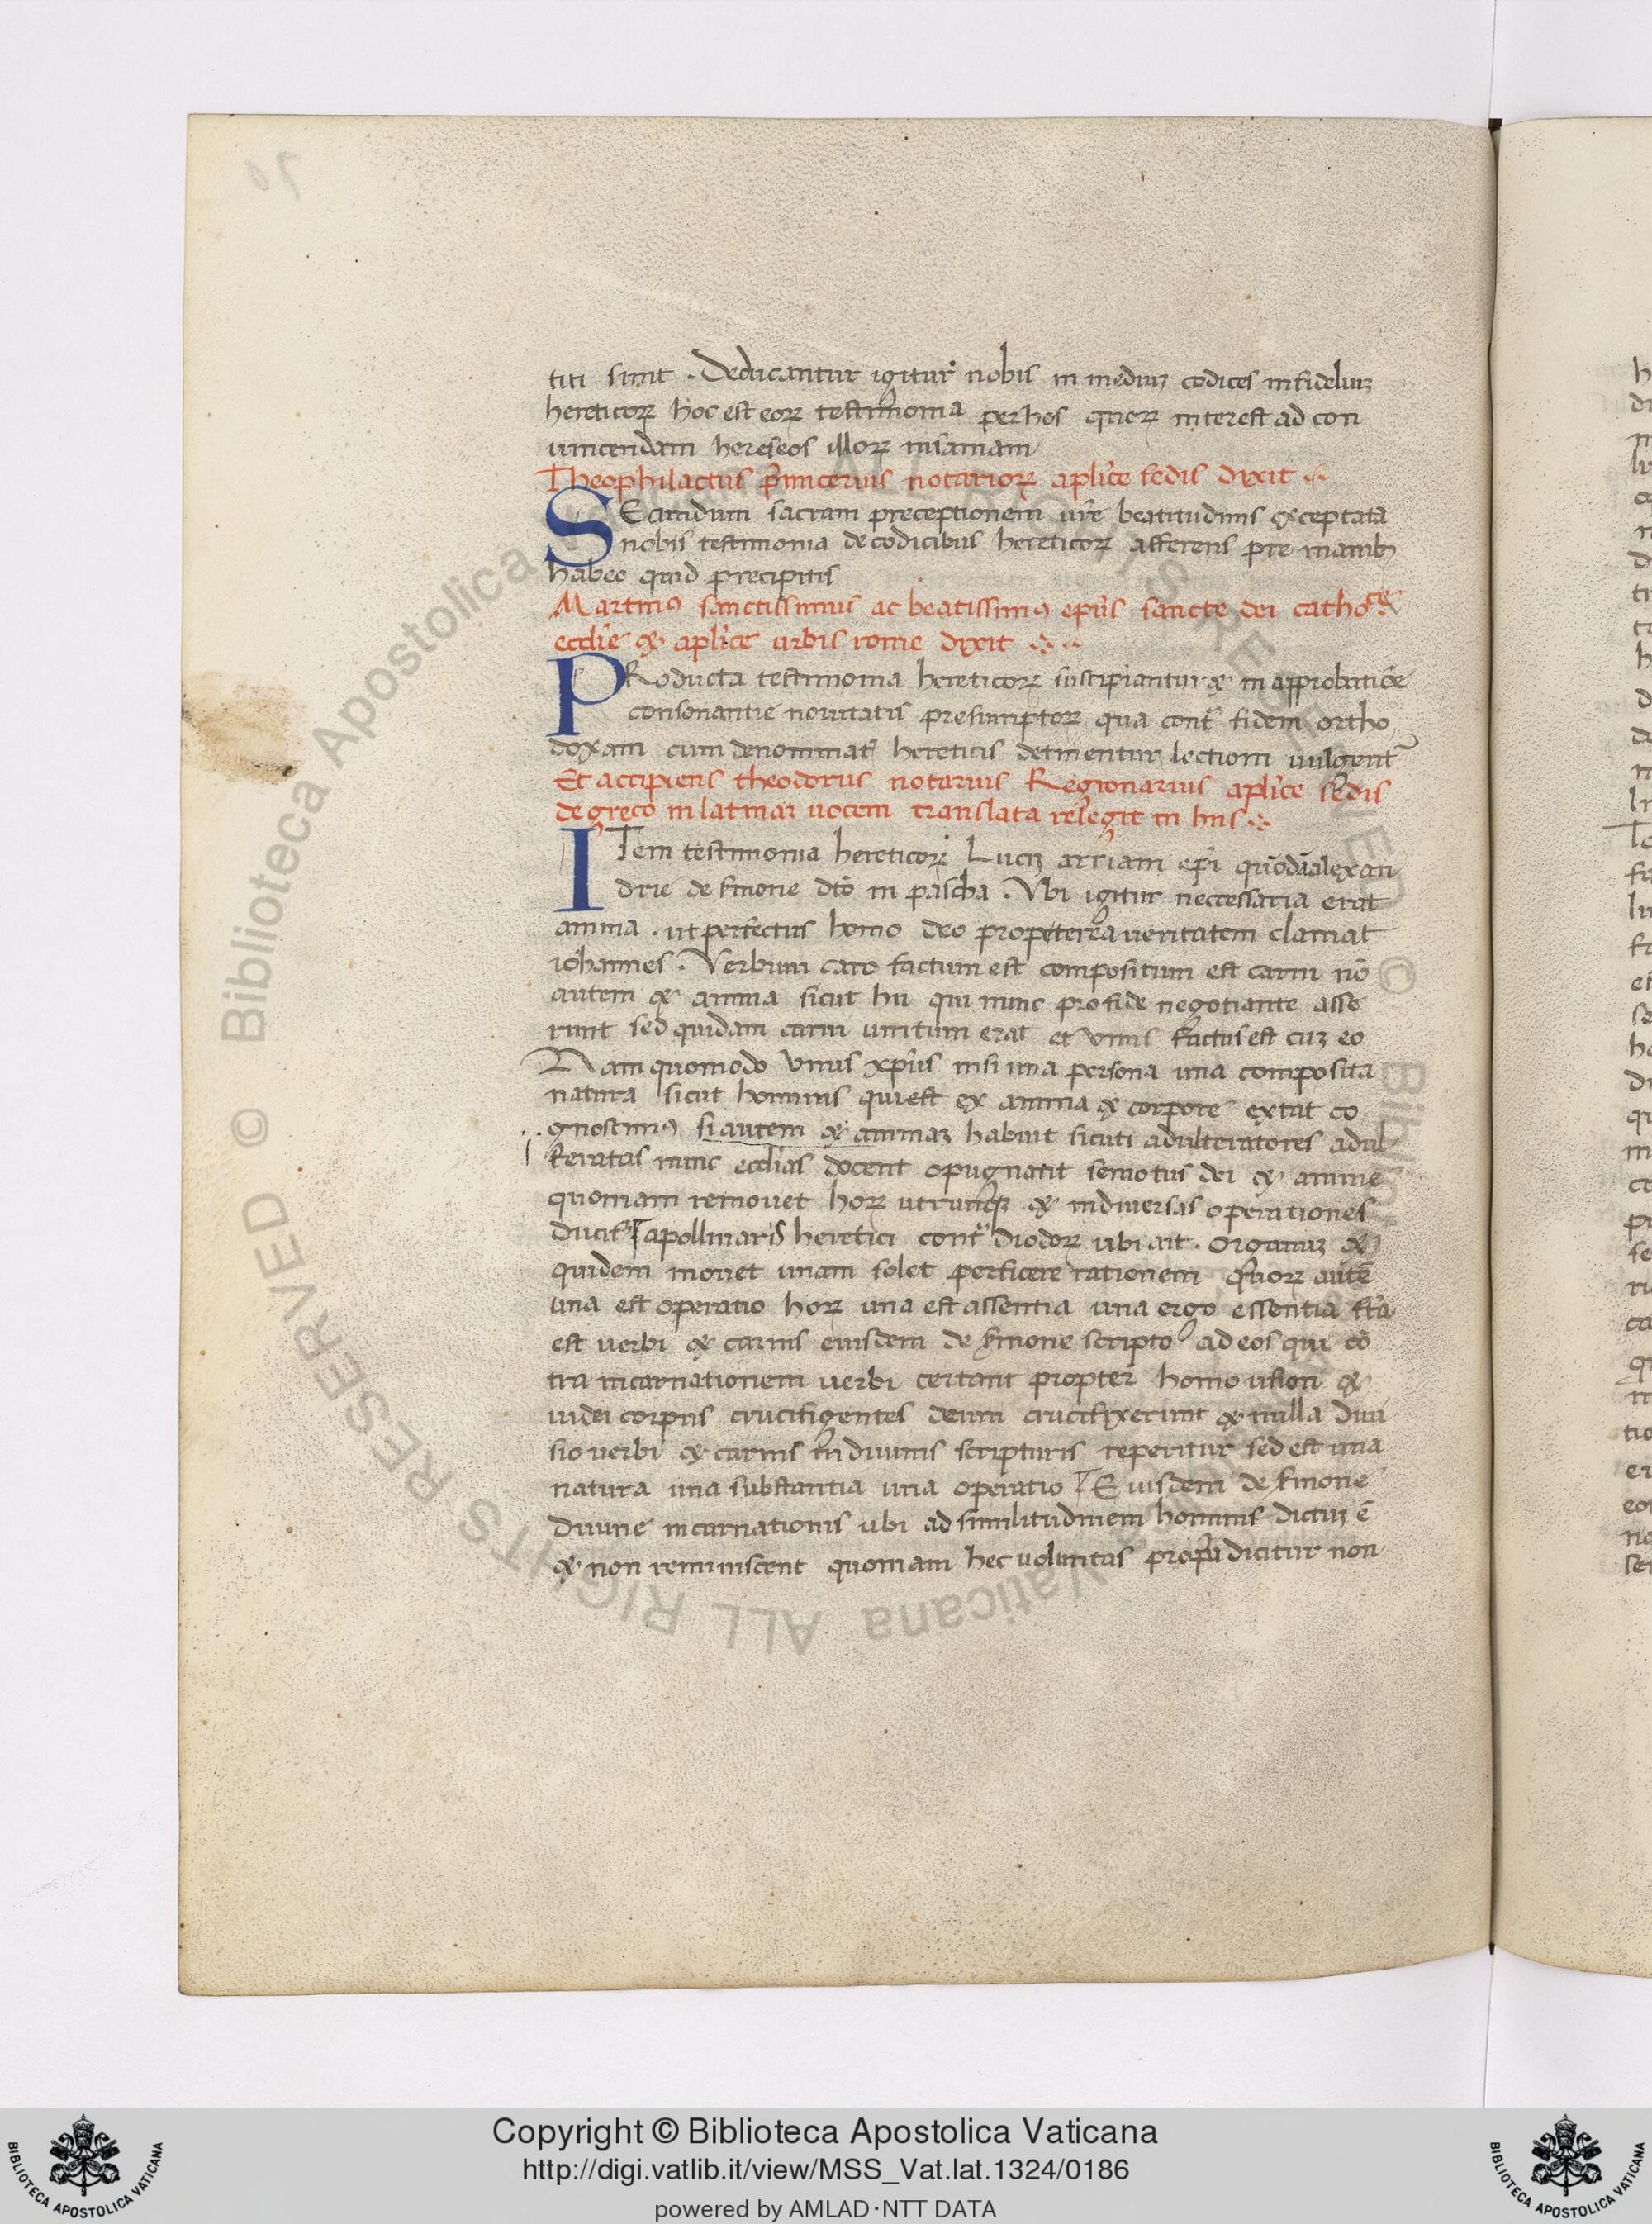 titi sunt . Deducantur igitur nobis in mediuꝫ codices infideliuꝫ
hereticoꝝ hoc est eoꝝ testimonia per hos quoꝝ interest ad con
uincendam hereseos illoꝝ insaniam
Theophilactus p̄micerius notarioꝝ aplice sedis dixit
SEcundum sacram preceptionem ur̄e beatitudinis exceptata
nobis testimonia de codicibus hereticoꝝ afferens pre manibꝫ
habeo quid precipitis
Martinꝰ sanctissimus ac beatissimꝰ ep̄us sancte dei catho ce
ecclie & aplice urbis rome dixit
PRoducta testimonia hereticoꝝ suscipiantur & in approbatiōe
consonantie nouitatis presumptoꝝ qua cont̄ fidem ortho
doxam cum denominat̄ hereticis detinentur lectioni uulgent̄
Et accipiens theodorus notarius Regionarius aplice sedis
de greco in latinaꝫ uocem translata relegit in hiis
ITem testimonia hereticoꝝ Lucij arriani ep̄i quōdā alexan
drie de s̄mone dc̄o in pascha . Vbi igitur neccessaria erat
anima . ut perfectus homo deo propeterea ueritatem clamat
iohannes . Verbum caro factum est compositum est carni nō
autem & anima sicut hii qui nunc pro fide negotiante asse
runt sed quidam carni unitum erat et vnus factus est cuꝫ eo
Nam quomodo vnus xp̄us nisi una persona una composita
natura sicut hominis qui est ex anima & corpore extat co
gnoscimꝰ si autem & animaꝫ habuit sicuti adulteratores adul
teratas nunc ecclias docent opugnant semotus dei & anime
quoniam remouet hoꝝ utrunqꝫ & in diuersas operationes
ducit apollinaris heretici cont̄ diodoꝝ ubi ait . Organuꝫ &
quidem mouet unam solet perficere rationem Quoꝝ autē
una est operatio hoꝝ una est assentia una ergo essentia fc̄a
est uerbi & carnis eiusdem de s̄mone scripto ad eos qui cō
tra incarnationem uerbi certant propter homo usion &
uidei corpus crucifigentes deum crucifixerunt & nulla diui
sio uerbi & carnis in diuinis scripturis reperitur sed est una
natura una substantia una operatio Eiusdem de s̄mone
diuine incarnationis ubi ad similitudinem hominis dictuꝫ ē
& non reminiscent quoniam hec uoluntas prop̄a dicitur non
Copyright © Biblioteca Apostolica Vaticana
http://digi.vatlib.it/view/MSS_Vat.lat.1324/0186
powered by AMLAD·NTT DATA